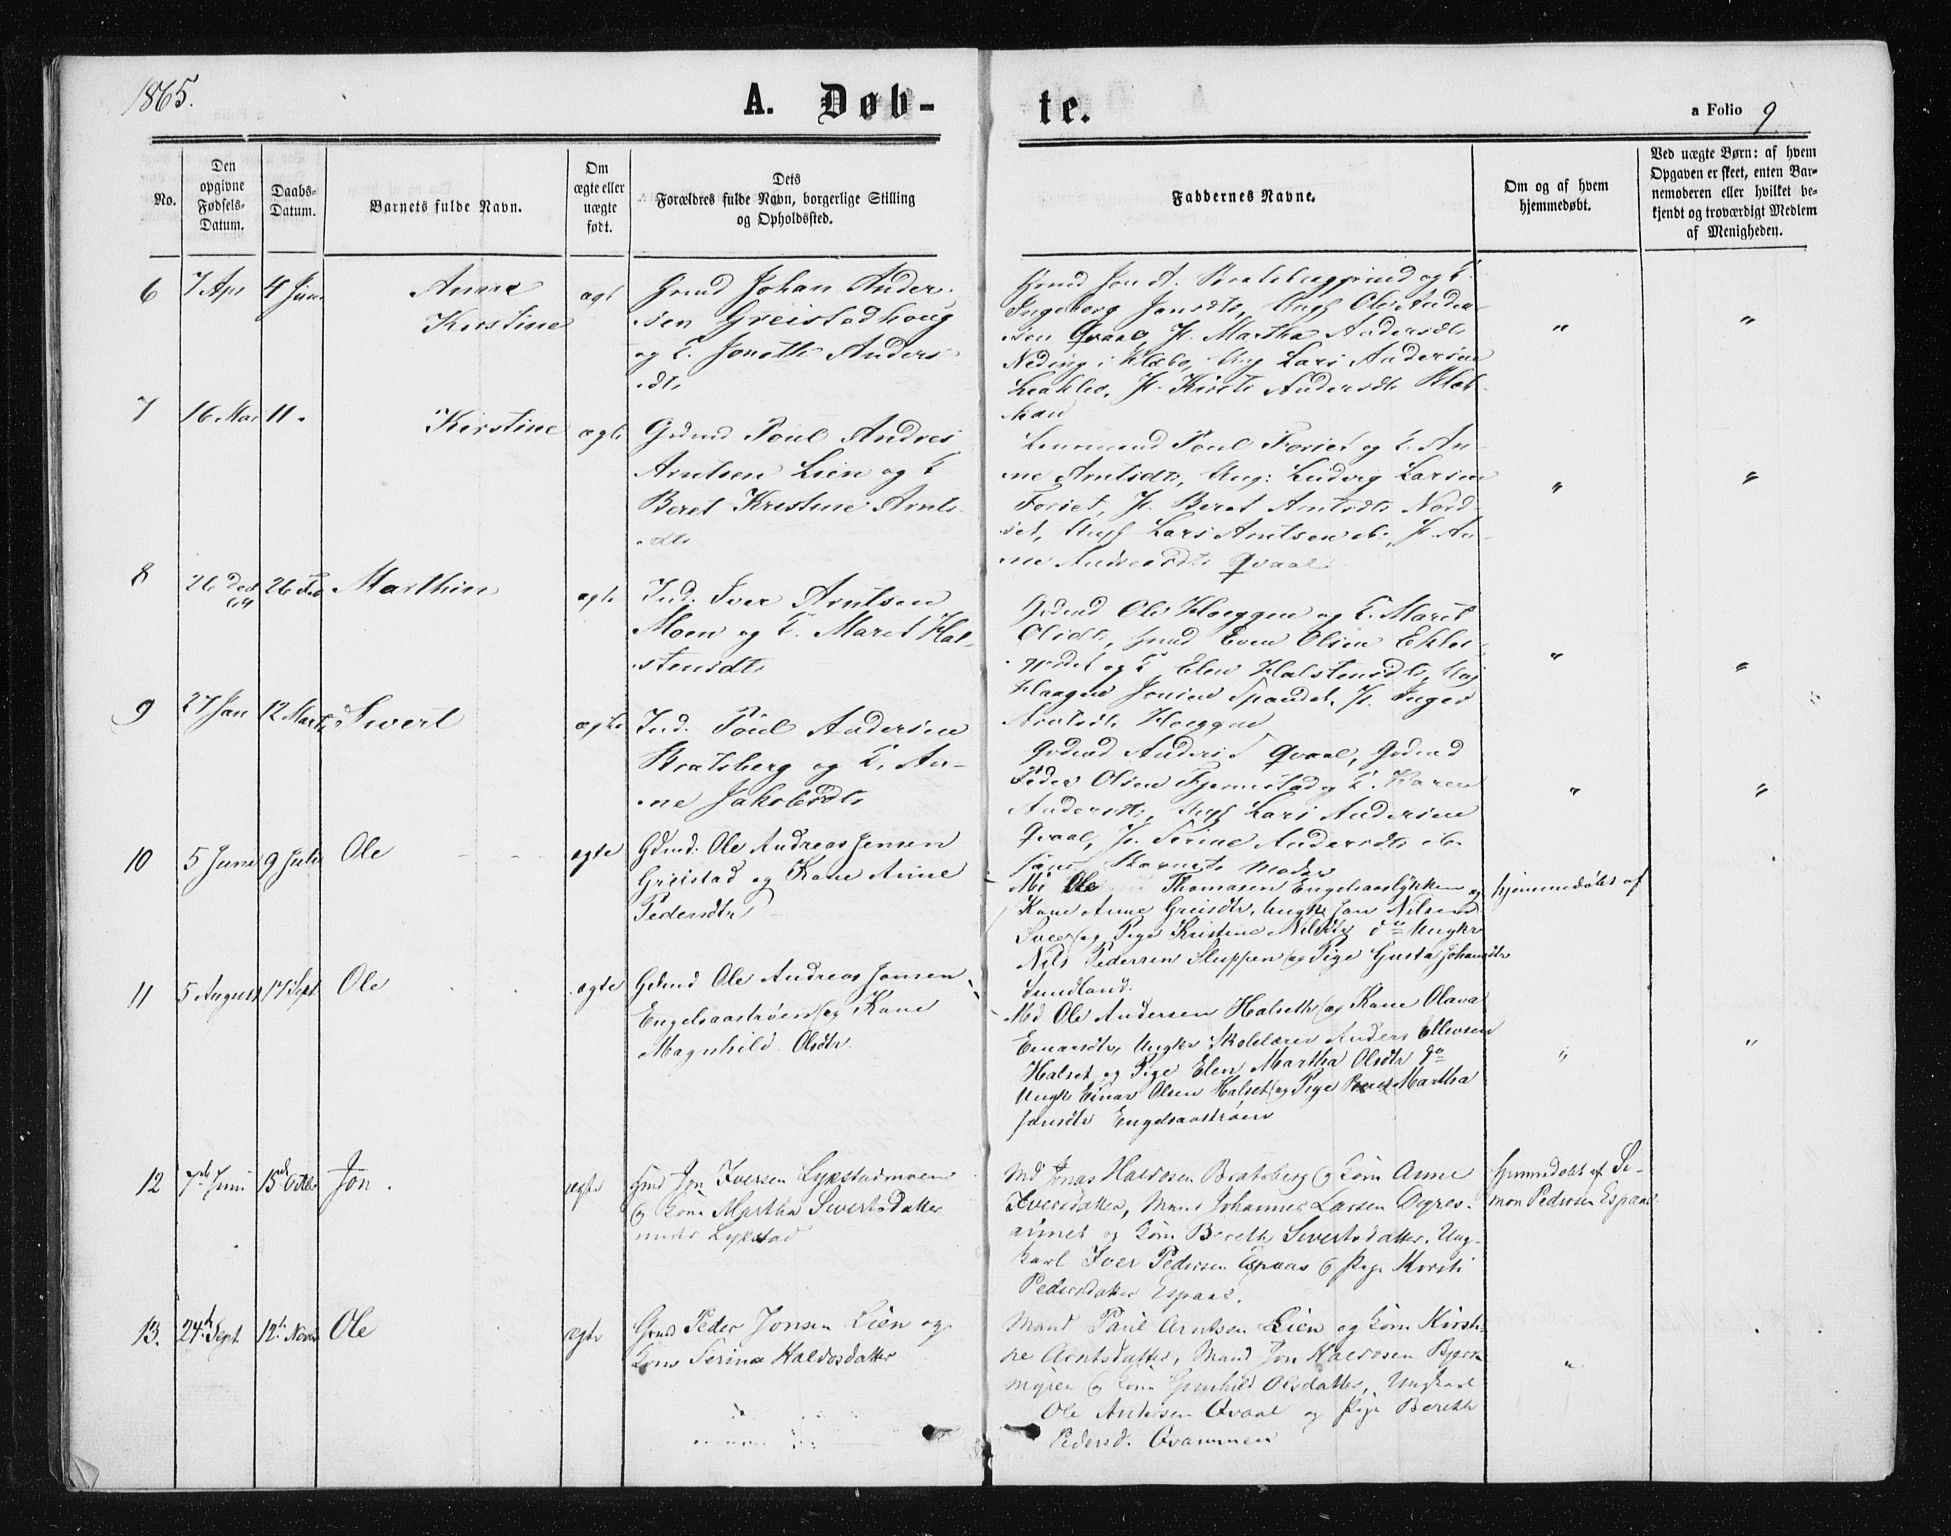 1865.
A. Døb-
te.
a Folio 9
No.
Den
opgivne
Fødsels-
Datum.
Daabs-
Datum.
Barnets fulde Navn.
Om
ægte eller
uægte
født.
Dets
Forældres fulde Navn, borgerlige Stilling
og Opholdssted.
Faddernes Navne.
Om og af hvem
hjemmedøbt.
Ved uægte Børn: af hvem
Opgaven er skeet, enten Bar-
nemoderen eller hvilket be-
kjendt og troværdigt Medlem
af Menigheden.
6 7 Apr 4 Juni Anna
Kirstine
Johan Ander-
sen Greistadhoug
og K. Jonette Anders-
dtr
Gmd Jon A. Bratsberg
Ingeborg Jonsdtr, Ungk Ole Ander-
sen Qvaal, P. Martha Andersdtr
Neding i Klæbo, Ung Lars Andersen
P. Kirsti Andersdtr
"
"
7 16 Mai 11 " Kirstine ægte
Gdmd Poul Andres
Arntsen Lien og K
Beret Kristine Arnts-
dtr
Poul Forset og K. An-
ne Arntsdtr, Ung: Ludvig Larsen
Forset, P. Beret Arntsdtr Nord-
set, Ungk Lars Arntsen ib, P. An-
ne Qvaal
"
"
8 26 Dec 64 26 Feb Marthin ægte
Ind. Iver Arntsen
Moen og K. Maret Hal-
stensdtr
Gdmd Ole Hoeggen og K. Maret
Olsdtr, Gmd Even Olsen Ekle-
og K Elen Halstensdtr, Ung
Haagen Jonsen Spandet, P. Inger
Arntsdtr Hoeggen
"
"
9 27 Jan 12 Marts Sivert ægte
Ind. Poul Andersen
Bratsberg og K. An-
ne Jakobsdtr
Gdmd Anders Qvaal, Gdmd
Peder Olsen Fjeremstad og K. Karen
Andersdtr, Ungk Lars Andersen
Qvaal, P. Serine Andersdtr ib.
samt Barnets Moder
"
"
10 5 Juni 9 Juli Ole ægte
Gdmd. Ole Andreas Jensen
Greistad og Kone Anne
Pedersdtr
Md Ole Thomasen Engelsaaslykken og
Kone Anne Greisdtr, Ungk Jon Nilsen
og Pige Kristine Nilsdtr do Ungkr
Nils Pedersen Sluppen og Pige Gusta Johansdtr
Sundland.
hjemmedøbt af
11 5 August 17 Sept. Ole ægte
Gdmd Ole Andreas Jonsen
Engelsaastrøen og Kone
Magnhild Olsdtr.
Md Ole Andersen Halseth og Kone Olava
Einarsdtr, Ungkr Skolelærer Anders Ellevsen
Halset og Pige Elen Martha Olsdtr do
Ungk Einar Olsen Halset og Pige Beret Martha
Jonsdtr Engelsaastrøen
"
"
12 7de Juni 15de Octbr Jon. ægte
Gmd Jon Iversen Lykstadmoen
og Kone Martha Sivertsdatter
under Lykstad
Md Jonas Haldosen Bratsberg og Kone Anne
Iversdatter, Mand Johannes Larsen Digres-
aunet og Kone Bereth Sivertsdatter, Ung-
karl Iver Pedersen Espaas og Pige Kirsti
Pedersdatter Espaas.
hjemmedøbt af Si-
mon Pedersen Espaas
13. 24de Sept. 12te Novbr Ole ægte
Gmd Peder Jonsen Lien og
Kone Serina Haldosdatter
Mand Paul Arntsen Lien og Kone Kirsti-
ne Arntsdatter, Mand Jon Haldosen Bjørk-
myren og Kone Gunhild Olsdatter, Ungkarl
Ole Arntsen Qvaal og Pige Bereth
Pedersd. Qvammen
"